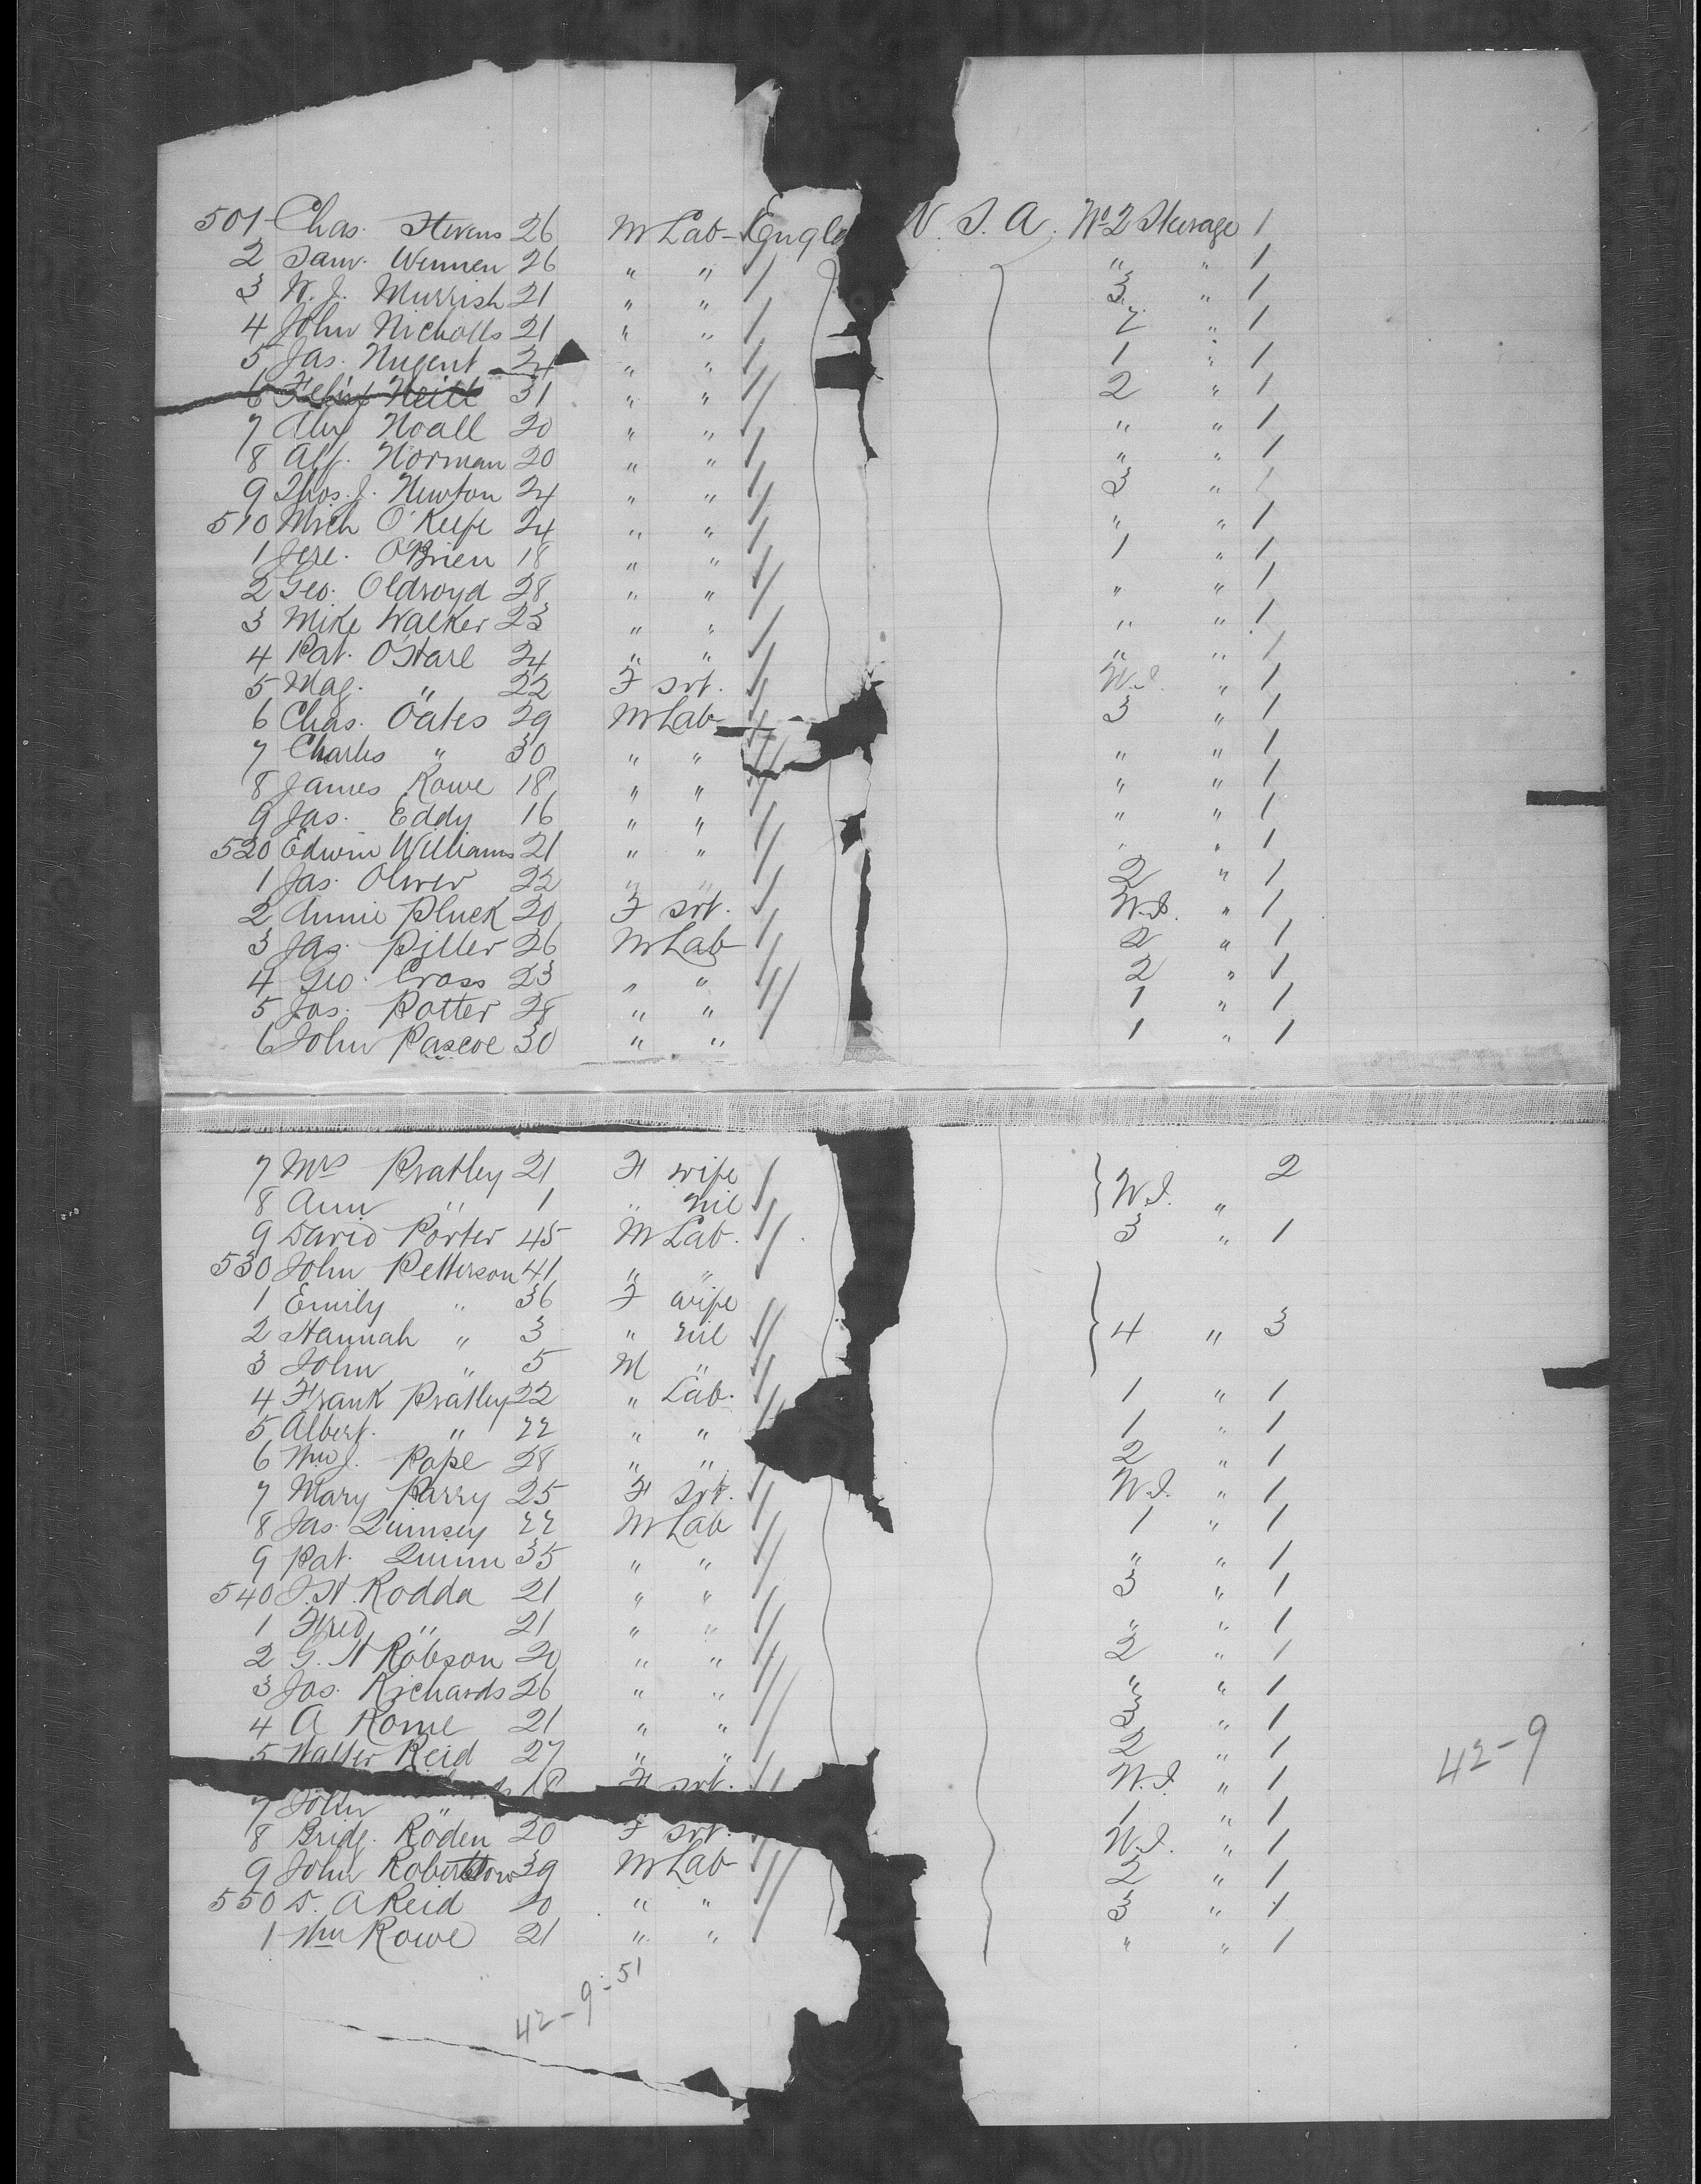 501 Chas. Stevens 26 M Lab Engla U. S. A. No 2 Steerage 1
2 Saml. Wennen 26 " " " " 1
3 W. J. Murrish 21 " " 3 " 1
4 John Nicholls 21 " " 2 " 1
5 Jas. Nugent 24 " " 1 " 1
6 Neill 31 " " 2 " 1
7 Noall 20 " " " " 1
8 Alf. Norman 20 " " " " 1
9 Thos. J. Newton 24 " " 3 " 1
510 Mich O'Keefe 24 " " " " 1
1 Jere. O'Brien 18 " " 1 " 1
2 Geo. Oldroyd 28 " " " " 1
3 Mike Walker 23 " " " " 1
4 Pat. O'Hare 24 " " " " 1
5 Mag. " 22 F svt. W.I. " 1
6 Chas. Oates 29 M Lab 3 " 1
7 Charles " 30 " " " " 1
8 James Rowe 18 " " " " 1
9 Jas. Eddy 16 " " " " 1
520 Edwin Williams 21 " " " " 1
1 Jas. Oliver 22 " " 2 " 1
2 Annie Pluck 20 F svt. W.I. " 1
3 Jas. Piller 26 M Lab 2 " 1
4 Geo. Cross 23 " " 2 " 1
5 Jos. Potter 28 " " 1 " 1
6 John Pascoe 30 " " 1 " 1
7 Mrs Pratley 21 F wife 2
8 Ann " 1 " nil W.I. "
9 David Porter 45 M Lab. 3 " 1
530 John Petterson 41 " "
1 Emily " 36 F wife
2 Hannah " 3 " nil 4 " 3
3 John " 5 M "
4 Frank Pratley 22 " Lab. 1 " 1
5 Albert. " 22 " " 1 " 1
6 Wm J. Pope 28 " " 2 " 1
7 Mary Parry 25 F svt. W.I. " 1
8 Jas. Qumsey 22 M Lab 1 " 1
9 Pat. Quinn 35 " " " " 1
540 J. H. Rodda 21 " " 3 " 1
1 Fred " 21 " " " " 1
2 G. H Robson 20 " " 2 " 1
3 Jos. Richards 26 " " " " 1
4 A Rowe 21 " " 3 " 1
5 Walter Reid 27 " " 2 " 1
18 F svt. W.I. " 1
7 John " 1 " 1
8 Bridg. Roden 20 F svt. W.I. " 1
9 John Robertson 39 M Lab 2 " 1
550 D. A Reid 20 " " 3 " 1
1 Wm Rowe 21 " " " " 1
42-9
42-9-51